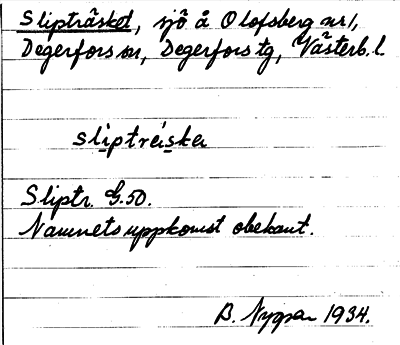 Slipträsket, sjö å Olofsberg nr 1,
Degerfors sn, Degerfors tg, Västerb. l.
sliptrǽska
Sliptr. G.50.
Namnets uppkomst obekant.
B. Nygren 1934.